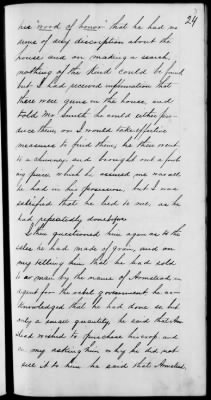 24
his "word of honor" that he had no
arms of any discription about the
house; and on making a search,
nothing of the kind could be found
but I had received information that
there were guns in the house, and
told Mr. Smith he could either pro-
duce them, or I would take effective
measures to find them, he then went
to a chimney and brought out a fowl-
ing piece which he assured me was all
he had in his possession, but I was
satisfied that he lied to me, as he
had repeatedly done before
I then questioned him again as to the
sales he had made of grain, and on
my telling him that he had sold
to a man by the name of Armstead, an
agent for the rebel government he ac-
knowledged that he had done so but
only a small quantity, he said that Arm-
stead wished to purchase his crop and
on my asking him why he did not
sell it to him he said that Armstead,